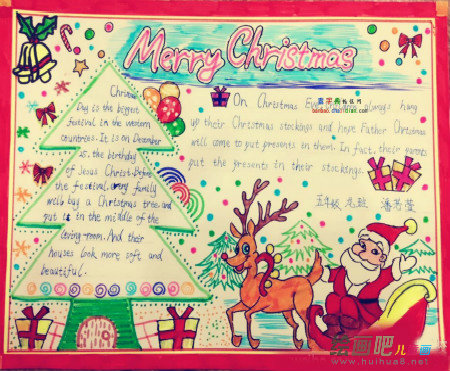 Merry Christmas
Christmas
Day is the biggest
festival in the western
countries. It is on December
is. the birthday
of Jesus Christ. Before
the festival, every family
will buy a Christmas tree and
put it in the middle of the
living-room. And their
houses look more soft and
beautiful.
On Christmas Eve, always hang
up their Christmas stockings and hope Father Christmas
will come to put presents in them. In fact, their parents
put the presents in their stockings.
五年级
儿画
www.huihua8.net